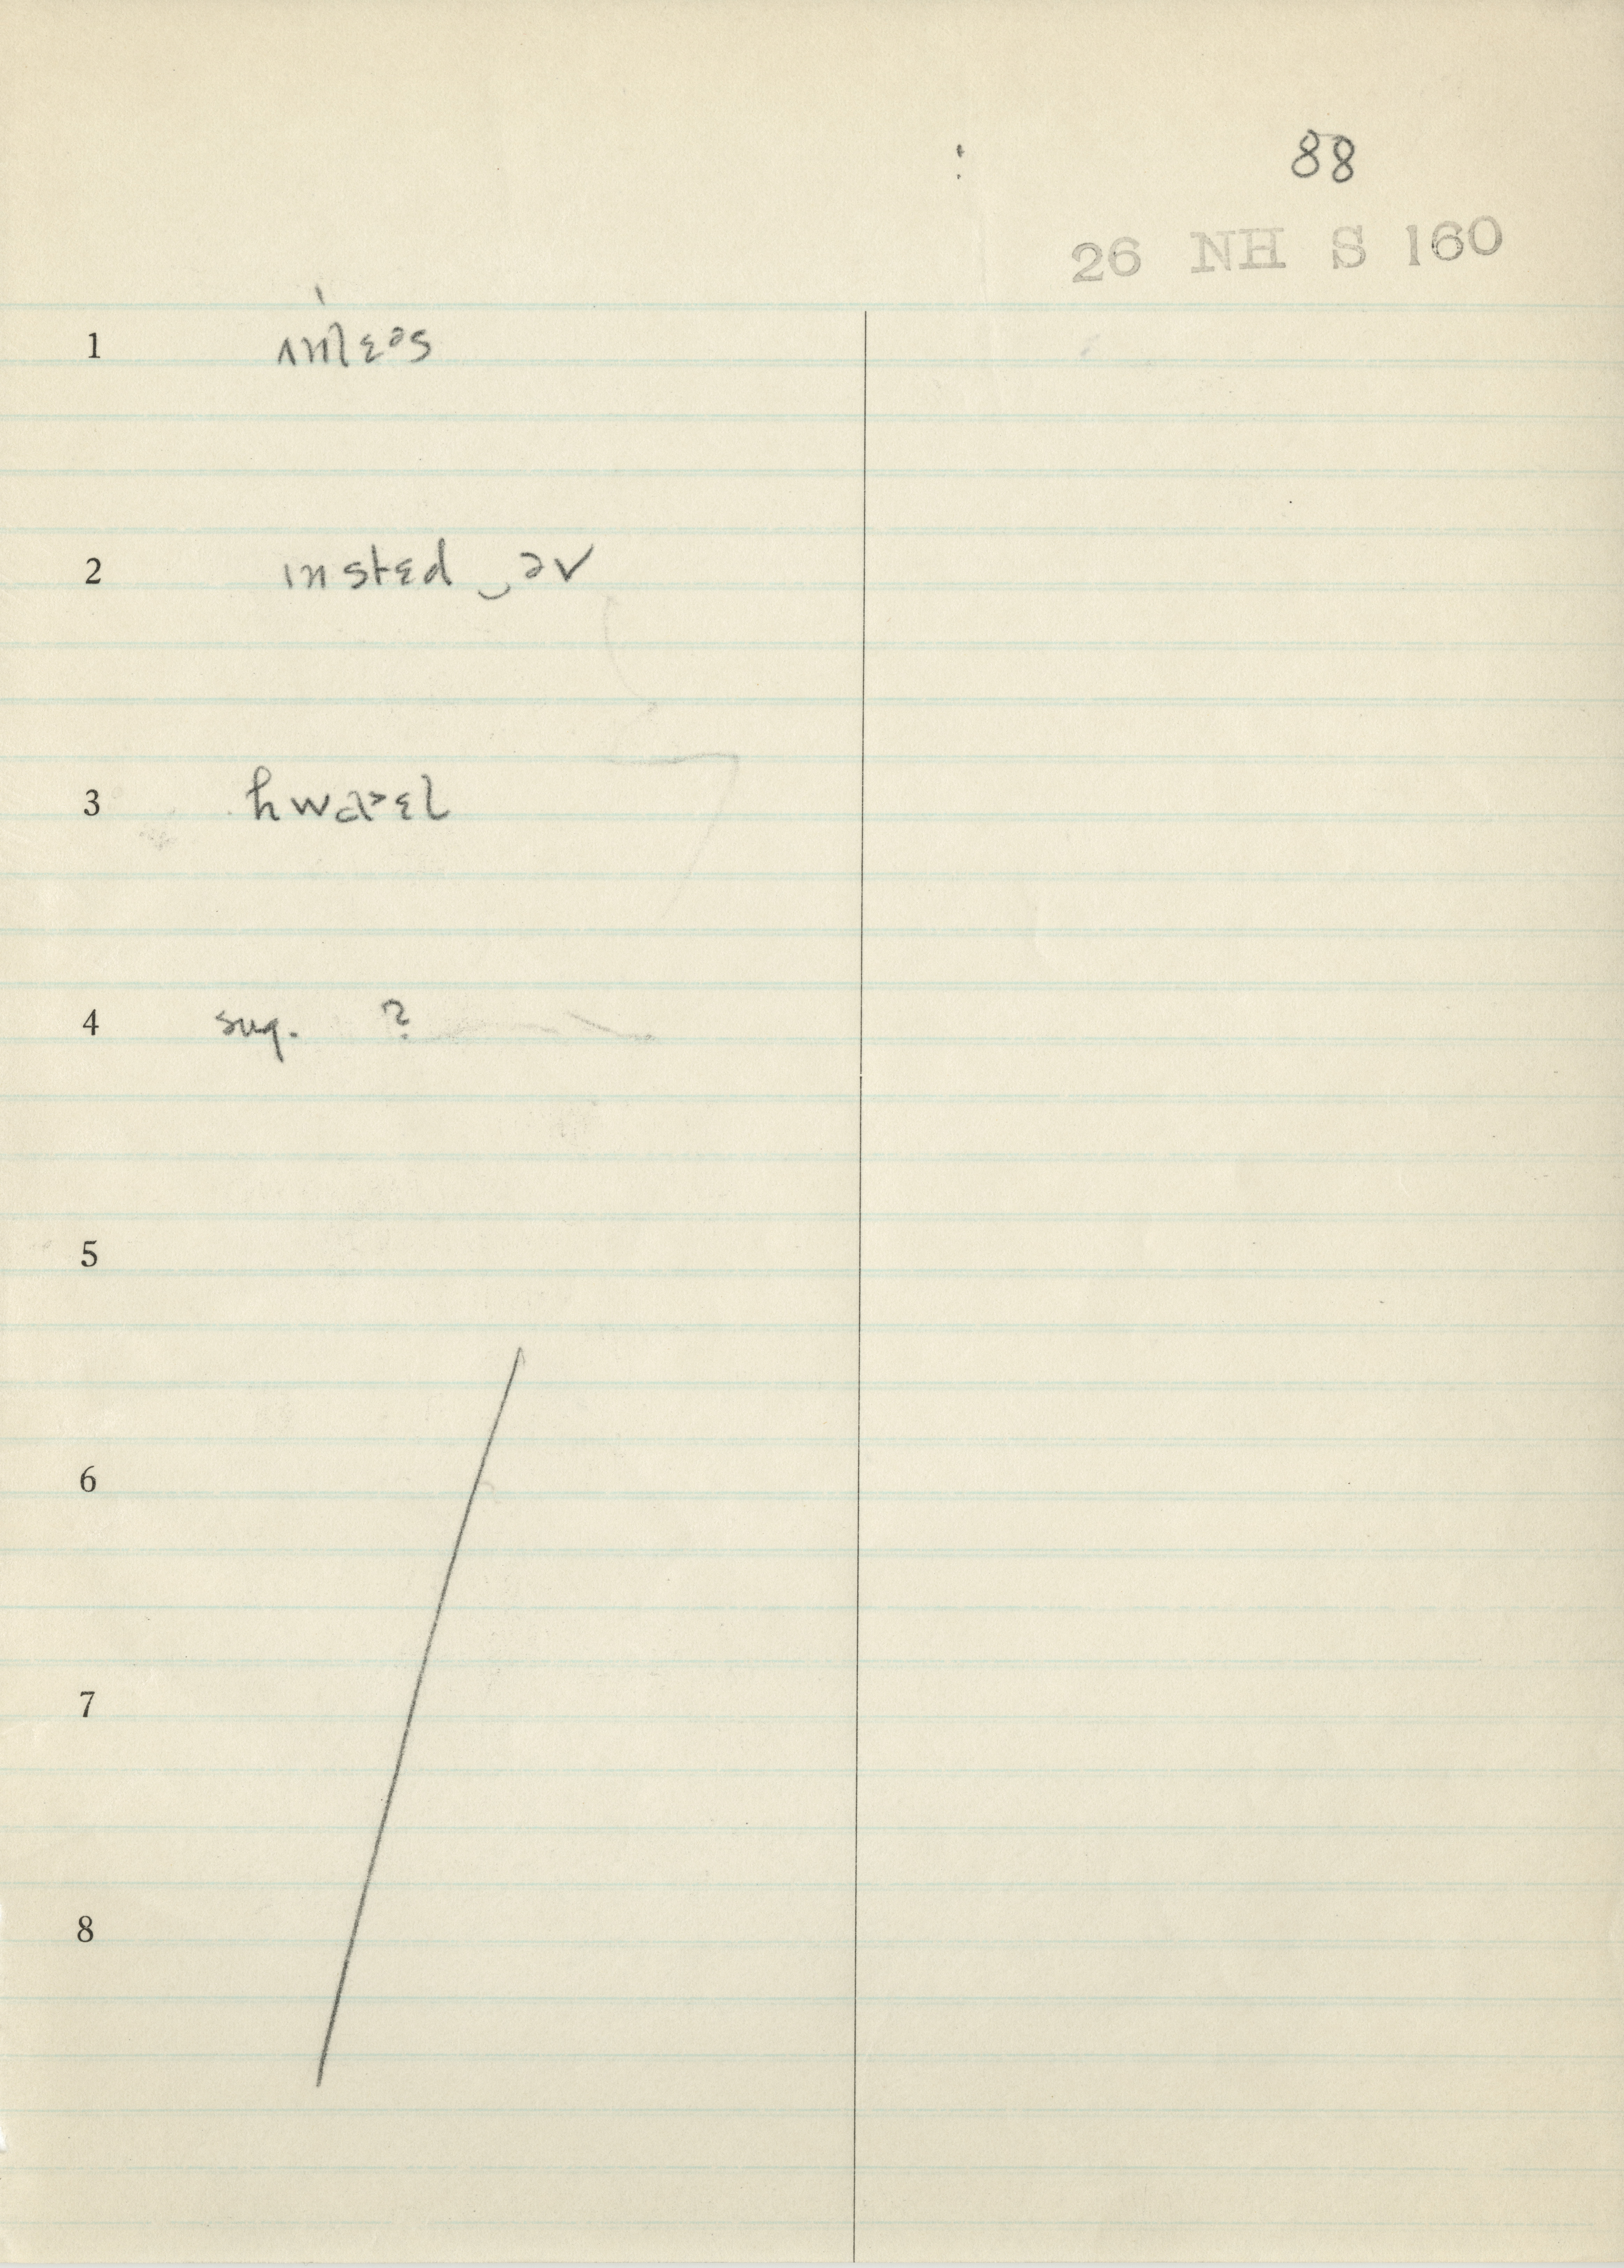 88
26 NH S 160
1 ʌnˈlɛᵊs
2 ɪnstɛd‿əv
3 hwɑɚɛl
4 sug. ?
5
6
7
8